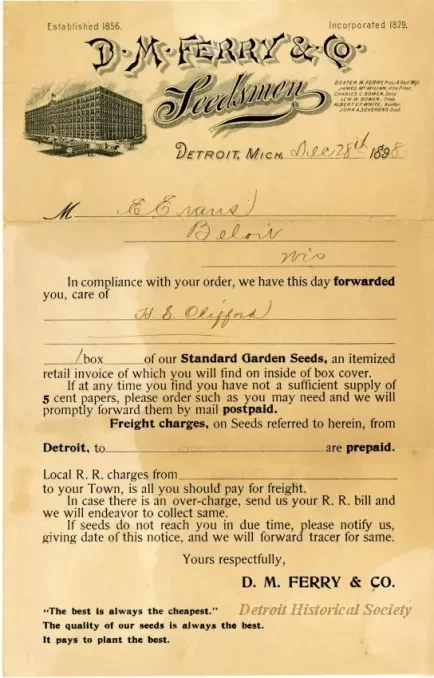 Established 1856.
Incorporated 1879.
D. M. FERRY & CO.
Seedsmen
DEXTER M. FERRY, Pres. & Genl Mgr.
JAMES McMILLAN, Vice Prest.
CHARLES C. BOWEN, Secy.
LEM W. BOWEN, Treas.
ALBERT E. F. WHITE, Auditor
JOHN A. SEVERENS, Supt.
DETROIT, MICH. Dec 28th 1898
M E Evans
Beloit
Wis
In compliance with your order, we have this day forwarded
you, care of
H. S. Clifford
1 box of our Standard Garden Seeds, an itemized
retail invoice of which you will find on inside of box cover.
If at any time you find you have not a sufficient supply of
5 cent papers, please order such as you may need and we will
promptly forward them by mail postpaid.
Freight charges, on Seeds referred to herein, from
Detroit, to are prepaid.
Local R. R. charges from
to your Town, is all you should pay for freight.
In case there is an over-charge, send us your R. R. bill and
we will endeavor to collect same.
If seeds do not reach you in due time, please notify us,
giving date of this notice, and we will forward tracer for same.
Yours respectfully,
D. M. FERRY & CO.
"The best is always the cheapest."
The quality of our seeds is always the best.
It pays to plant the best.
Detroit Historical Society